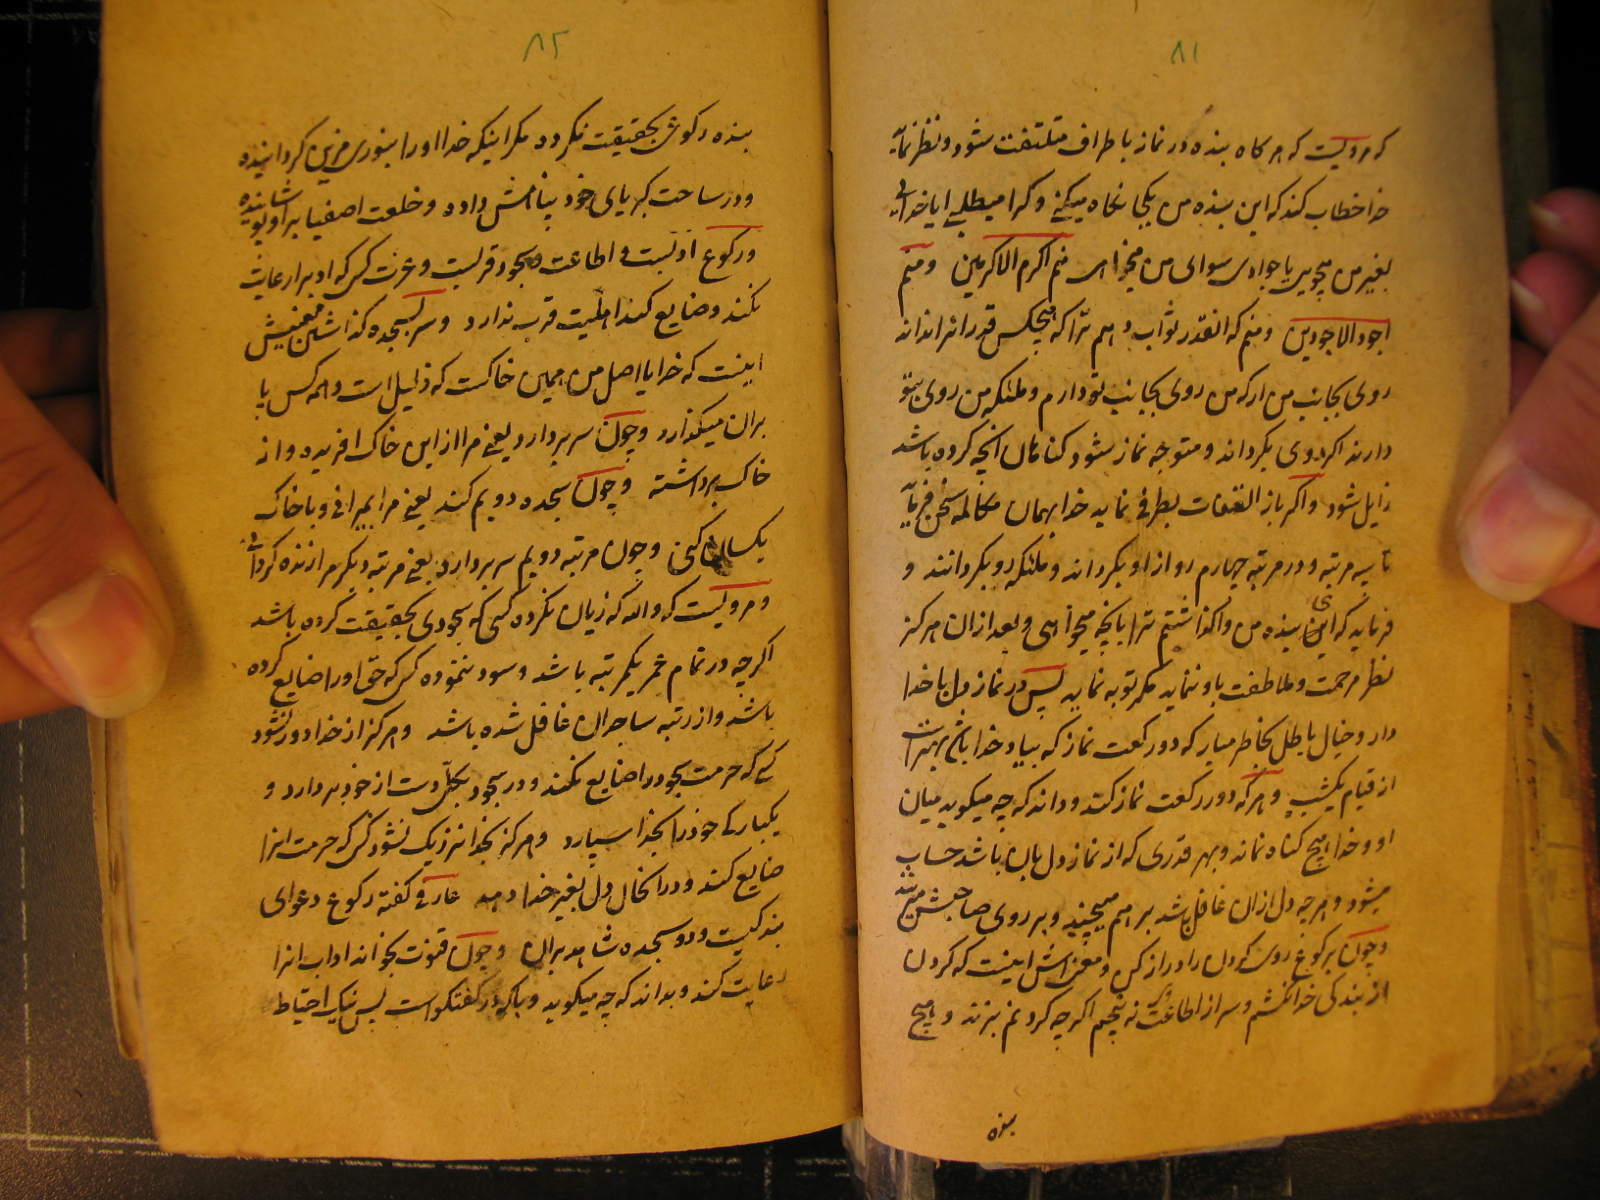 ۸۱
که مرویست که هر گاه بنده در نماز باطراف ملتفت شود و نظر نماید
خدا خطاب کند که این بنده من بکجا نگاه میکنی و کرا میطلبی ایا خدائی
بغیر من میجویی یا جوادی سوای من میخواهی منم اکرم الاکرمین و منم
اجود الاجودین و منم که انقدر ثواب دهم ترا که هیچکس قدر انرا نداند
روی بجانب من ار که من روی بجانب تو دارم و ملئکه من روی بتو
دارند اگر روی بگرداند و متوجه نماز شود گناهان انچه کرده باشد
زایل شود و اگر باز التفات بطرفی نماید خدا بهمان مکالمه سخن فرماید
تا سه مرتبه و در مرتبه چهارم رو از او بگرداند و ملئکه رو بگردانند و
فرماید که ای بنده من واگذاشتم ترا بانچه میخواهی و بعد از ان هرگز
نظر مرحمت و ملاطفت باو ننماید مگر توبه نماید پس در نماز دل با خدا
دار و خیال باطل بخاطر میار که دو رکعت نماز که بیاد خدا باشی بهتر است
از قیام یکشب و هر که دو رکعت نماز کند و داند که چه میگوید میان
او و خدا هیچ گناه نماند و بهر قدری که از نماز دل بان باشد حساب
میشود و هر چه دل از ان غافل باشد بر هم میپیچند و بر روی صاحبش میزنند
و چون برکوع روی گردن را دراز کن و معنی اش اینست که گردن
از بندگی خدا نکشم و سر از اطاعت نه پیچم اگر چه گردنم بزنند و هیچ
بنده
۸۲
بنده رکوعی بحقیقت نکرده مگر اینکه خدا او را بنوری مزین گردانیده
و در ساحت کبریای خود پناهش داده و خلعت اصفیا بر او پوشانیده
و رکوع اولست و اطاعت و سجود قربست و عزت کسی که ادب را رعایت
نکند و ضایع کند اهلیت قرب ندارد و سر بسجده گذاشتن معنیش
اینست که خدایا اصل من همین خاکست که ذلیل است و همه کس پا
بران میگذارد و چون سر بردارد یعنی مرا از این خاک افریده و از
خاک برداشته و چون سجده دویم کند یعنی مرا بمیرانی و با خاک
یکسان کنی و چون مرتبه دویم سر بردارد یعنی مرتبه دیگر مرا زنده گردانی
و مرویست که والله که زیان نکرده کسی که سجودی بحقیقت کرده باشد
اگر چه در تمام عمر یکمرتبه باشد و سود ننموده کسی که حق او را ضایع کرده
باشد و از رتبه ساجدان غافل شده باشد و هرگز از خدا دور نشود
کسی که حرمت سجود را ضایع نکند و در سجود بکل دست از خود بردارد و
یکبارگی خود را بخدا سپارد و هرگز بخدا نزدیک نشود کسی که حرمت انرا
ضایع کند و در انحال دل بغیر خدا دهد عارفی گفته رکوع دعوای
بندگیست و دو سجده شاهد بران و چون قنوت بخواند اداب انرا
رعایت کند و بداند که چه میگوید و با که در گفتگو است پس نیک احتیاط